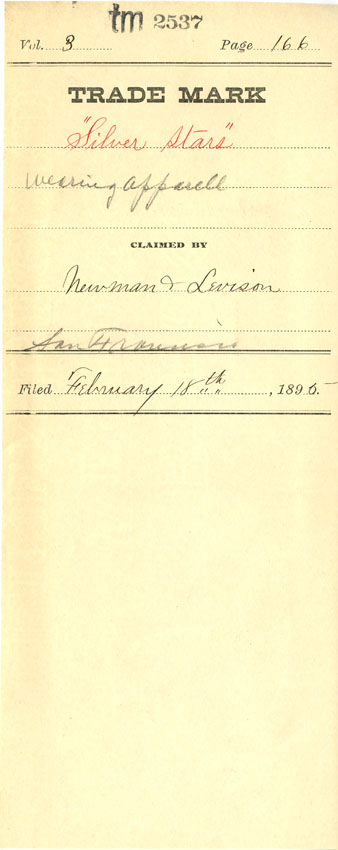 tm 2537
Vol. 3 Page 166
TRADE MARK
"Silver Stars"
Wearing apparell
CLAIMED BY
Newman & Levison
San Francisco
Filed February 18th, 1895.